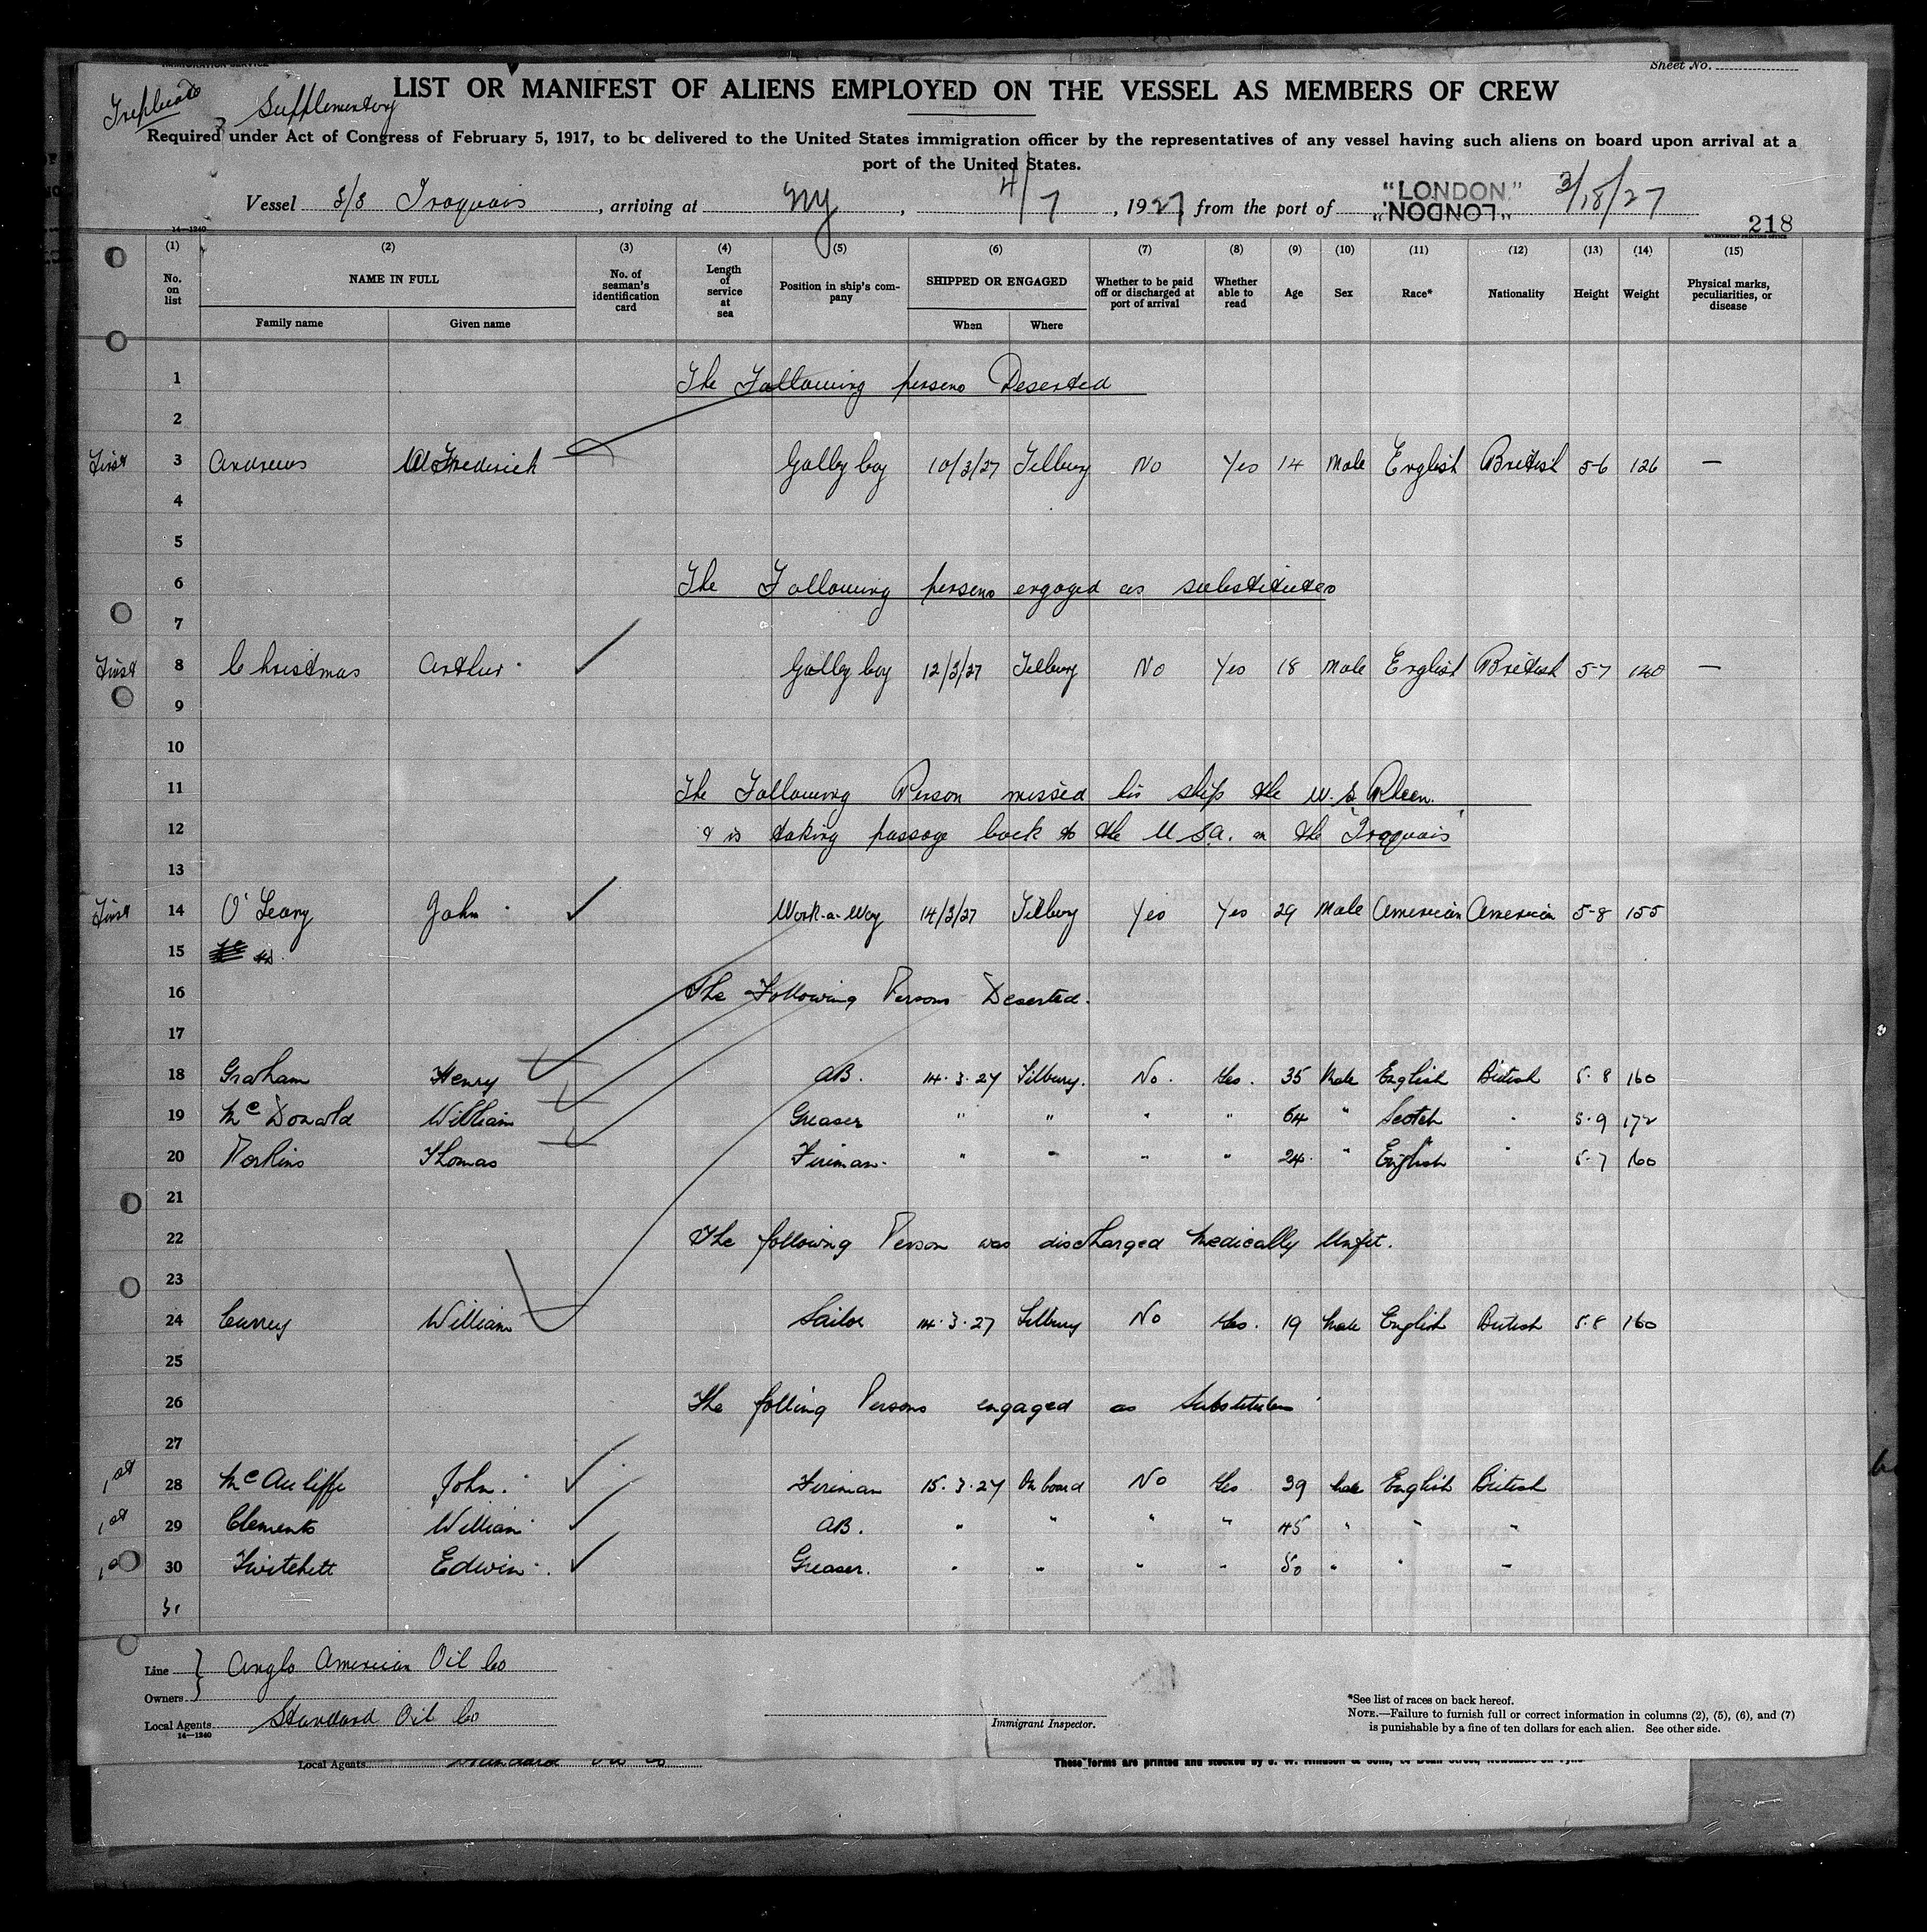 IMMIGRATION SERVICE
Sheet No.
Triplicate
Supplementary
LIST OR MANIFEST OF ALIENS EMPLOYED ON THE VESSEL AS MEMBERS OF CREW
Required under Act of Congress of February 5, 1917, to be delivered to the United States immigration officer by the representatives of any vessel having such aliens on board upon arrival at a
port of the United States.
Vessel S/S Iroquois, arriving at NY, 4/7, 1927, from the port of "LONDON" 3/18/27
"LONDON"
14—1240
218
GOVERNMENT PRINTING OFFICE
(1) (2) (3) (4) (5) (6) (7) (8) (9) (10) (11) (12) (13) (14) (15)
No. on list NAME IN FULL No. of seaman's identification card Length of service at sea Position in ship's company SHIPPED OR ENGAGED Whether to be paid off or discharged at port of arrival Whether able to read Age Sex Race* Nationality Height Weight Physical marks, peculiarities, or disease
Family name Given name When Where
1 The Following persons Deserted
2
First 3 Andrews Wm Frederick Galley boy 10/3/27 Tilbury No Yes 14 Male English British 5-6 126 —
4
5
6 The Following persons engaged as substitutes
7
First 8 Christmas Arthur Galley boy 12/3/27 Tilbury No Yes 18 Male English British 5-7 140 —
9
10
11 The Following Person missed his ship the W. S. Rheem.
12 & is taking passage back to the USA. on the "Iroquois"
13
First 14 O'Leary John Work-a-Way 14/3/27 Tilbury Yes Yes 29 Male American American 5-8 155
15
16 The Following Persons Deserted.
17
18 Graham Henry AB. 14.3.27 Tilbury. No. Yes. 35 Male English British 5.8 160
19 McDonald William Greaser " " " " 64 " Scotch " 5.9 172
20 Perkins Thomas Fireman. " " " " 24. " English " 5.7 160
21
22 The following Person was discharged Medically Unfit.
23
24 Currey William Sailor 14.3.27 Tilbury No Yes. 19 Male English British 5.8 160
25
26 The folling Persons engaged as Substitutes
27
1st 28 McAuliffe John. Fireman 15.3.27 On board No Yes 39 Male English British
1st 29 Clements William AB. " " " " 45 " " "
1st 30 Twitchett Edwin. Greaser. " " " " 50 " " "
31
Line } Anglo American Oil Co
Owners
Local Agents Standard Oil Co
14—1240
Immigrant Inspector.
*See list of races on back hereof.
NOTE.—Failure to furnish full or correct information in columns (2), (5), (6), and (7)
is punishable by a fine of ten dollars for each alien. See other side.
Local Agents Standard Oil Co
These forms are printed and stocked by